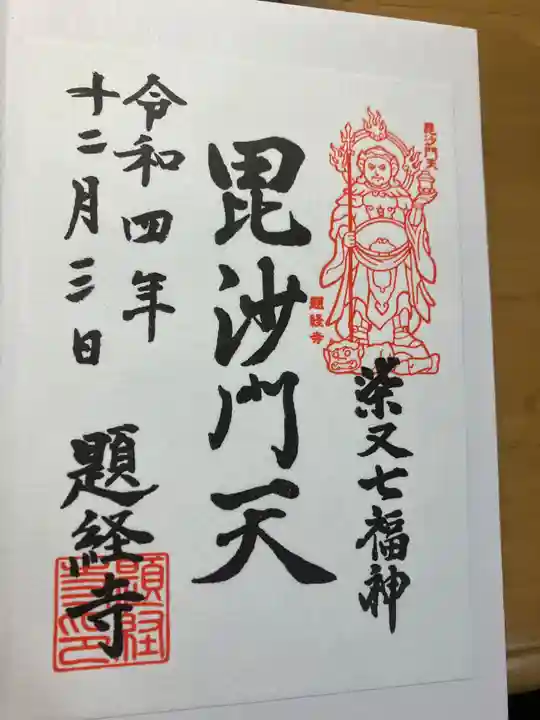 毘沙門天
題経寺
柴又七福神
毘沙門天
令和四年
十二月三日
題経寺
題経
寺印